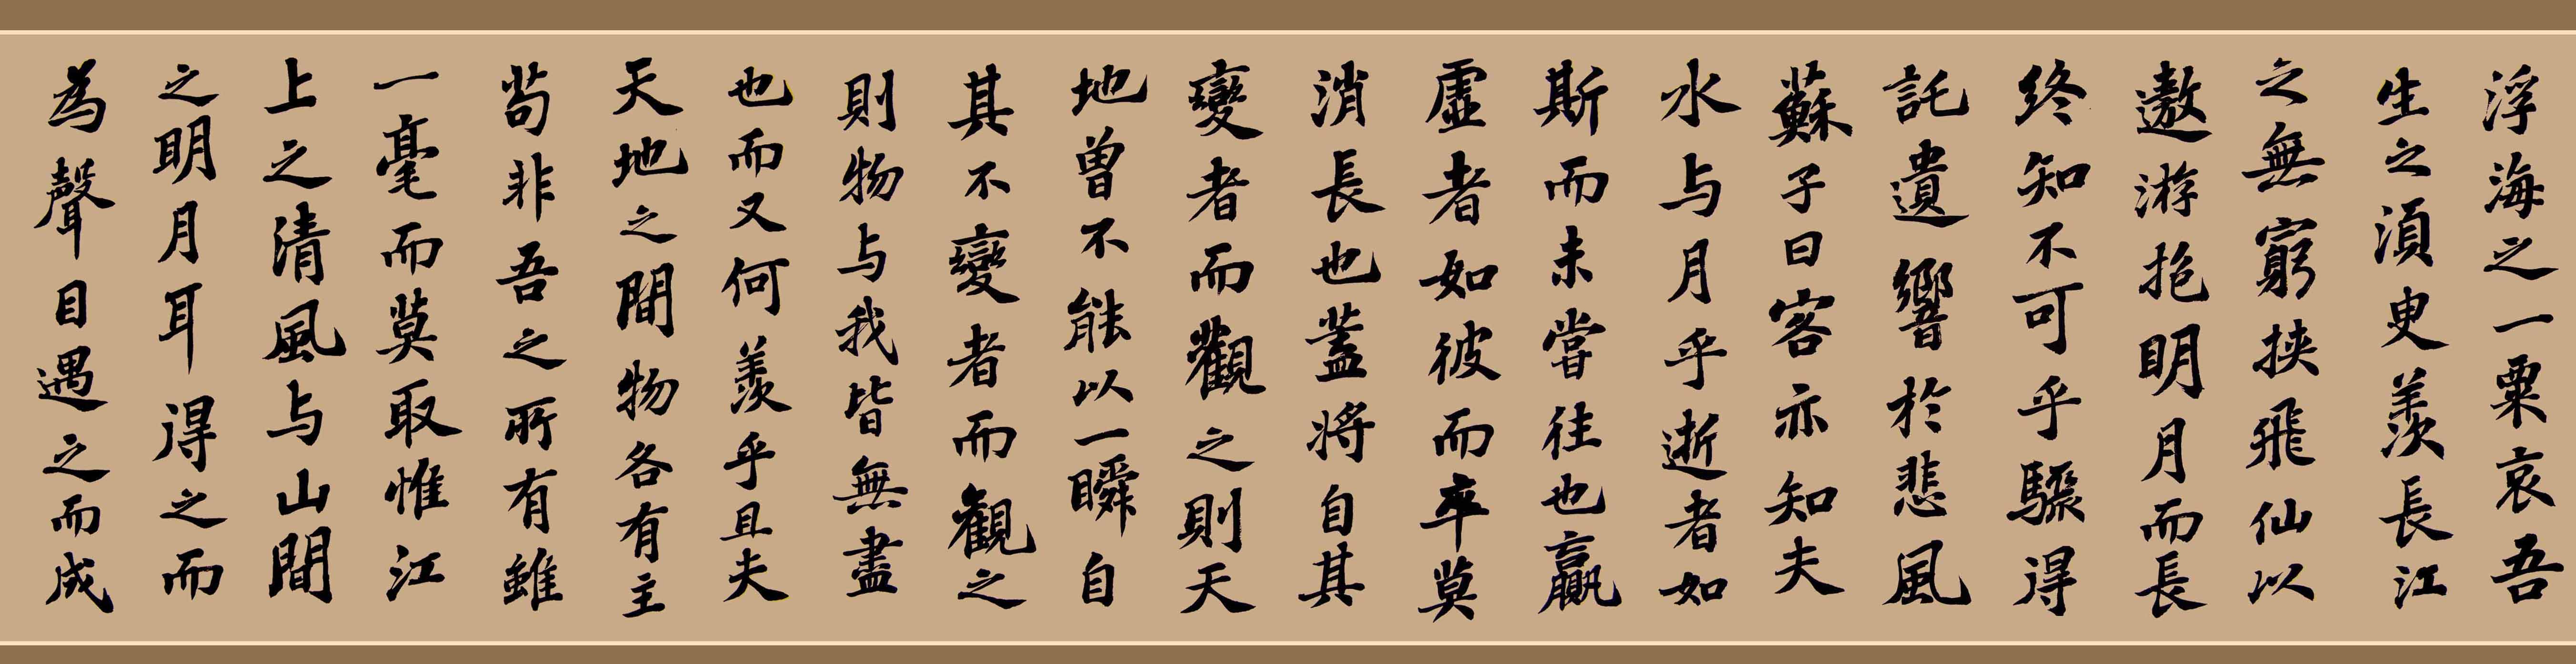 浮海之一粟哀吾
生之湏臾羨長江
之無窮挾飛仙以
遨游抱明月而長
终知不可乎驟得
託遺響於悲風
蘇子曰客亦知夫
水与月乎逝者如
斯而未甞往也贏
虛者如彼而卒莫
消長也盖将自其
變者而觀之則天
地曾不能以一瞬自
其不變者而觀之
則物与我皆無盡
也而又何羨乎且夫
天地之間物各有主
苟非吾之所有雖
一毫而莫取惟江
上之清風与山間
之明月耳得之而
為聲目遇之而成